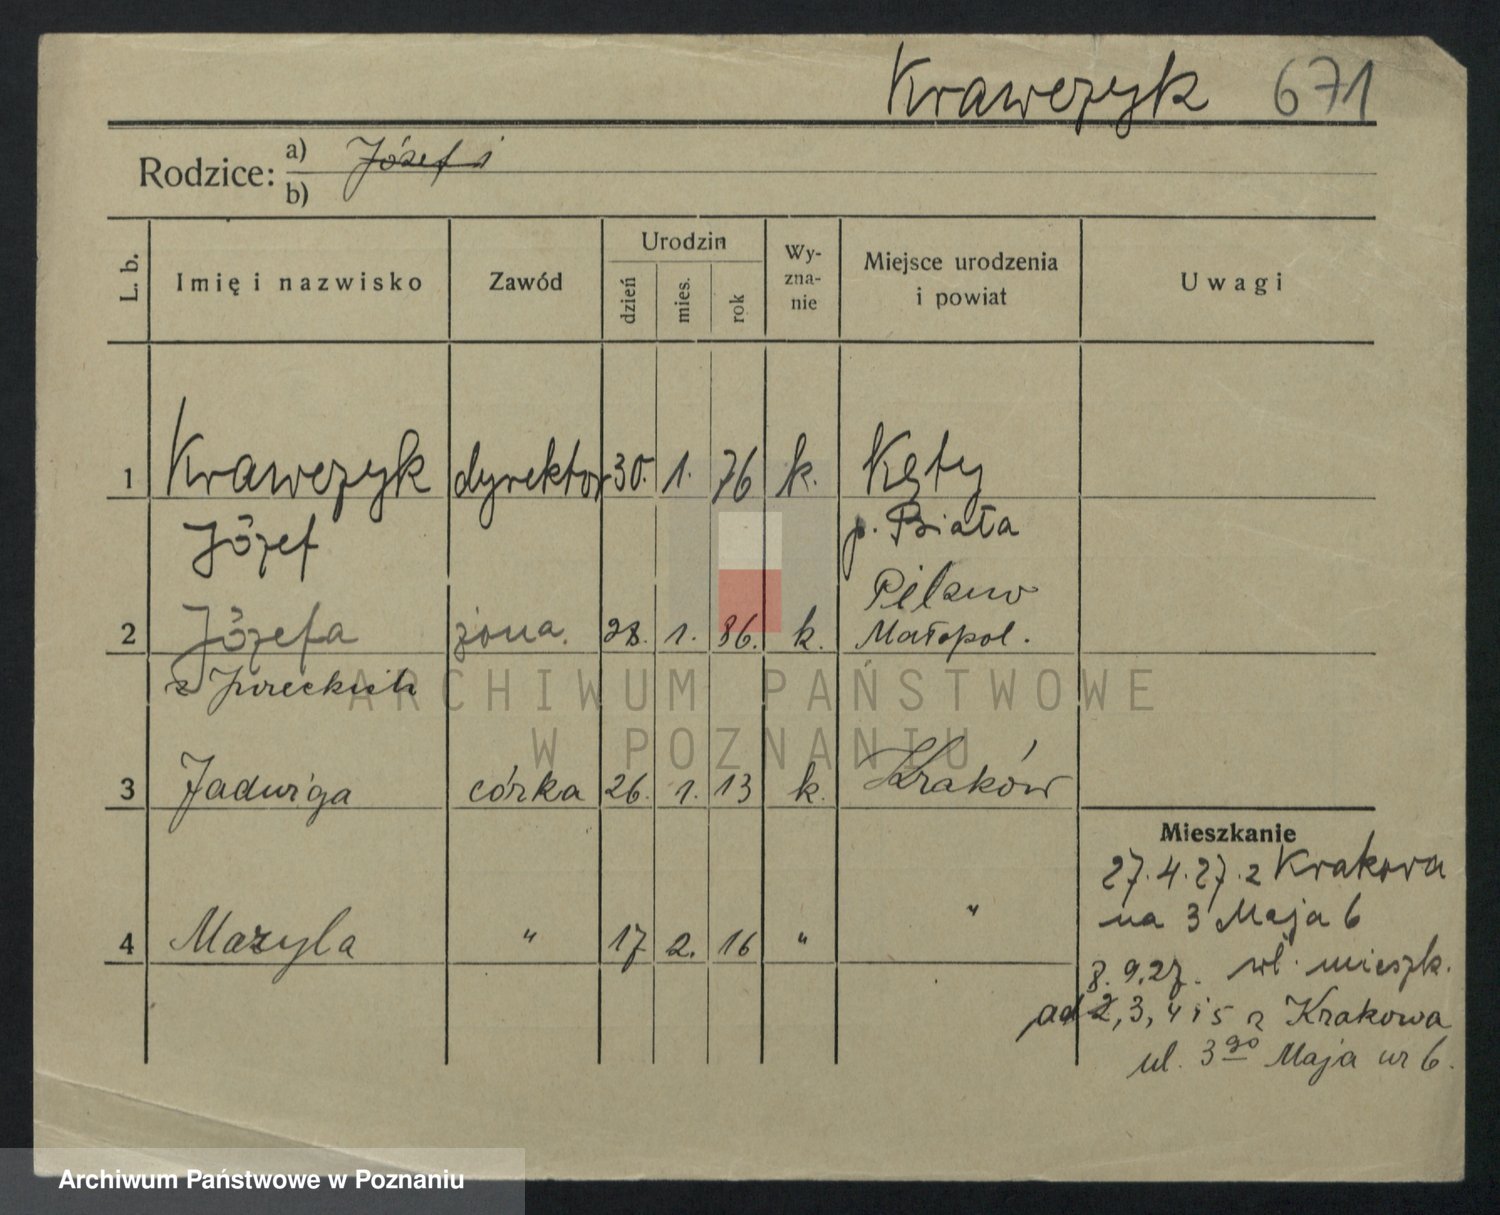 Krawczyk 671
Rodzice: a) Józef i
b)
L. b. Imię i nazwisko Zawód Urodzin dzień mies. rok Wy-zna-nie Miejsce urodzenia i powiat Uwagi
1 Krawczyk dyrektor 30. 1. 76 k. Kęty
Józef p. Biała
Pilzno
2 Józefa żona. 28. 1. 86. k. Małopol.
z
3 Jadwiga córka 26. 1. 13 k. Kraków
Mieszkanie
27.4.27. z Krakowa
na 3 Maja 6
4 Mazyla " 17 2. 16 " "
8.9.27. wł. mieszk.
ad 2, 3, 4 i 5 z Krakowa
ul. 3go Maja nr 6.
ARCHIWUM PAŃSTWOWE
W POZNANIU
Archiwum Państwowe w Poznaniu